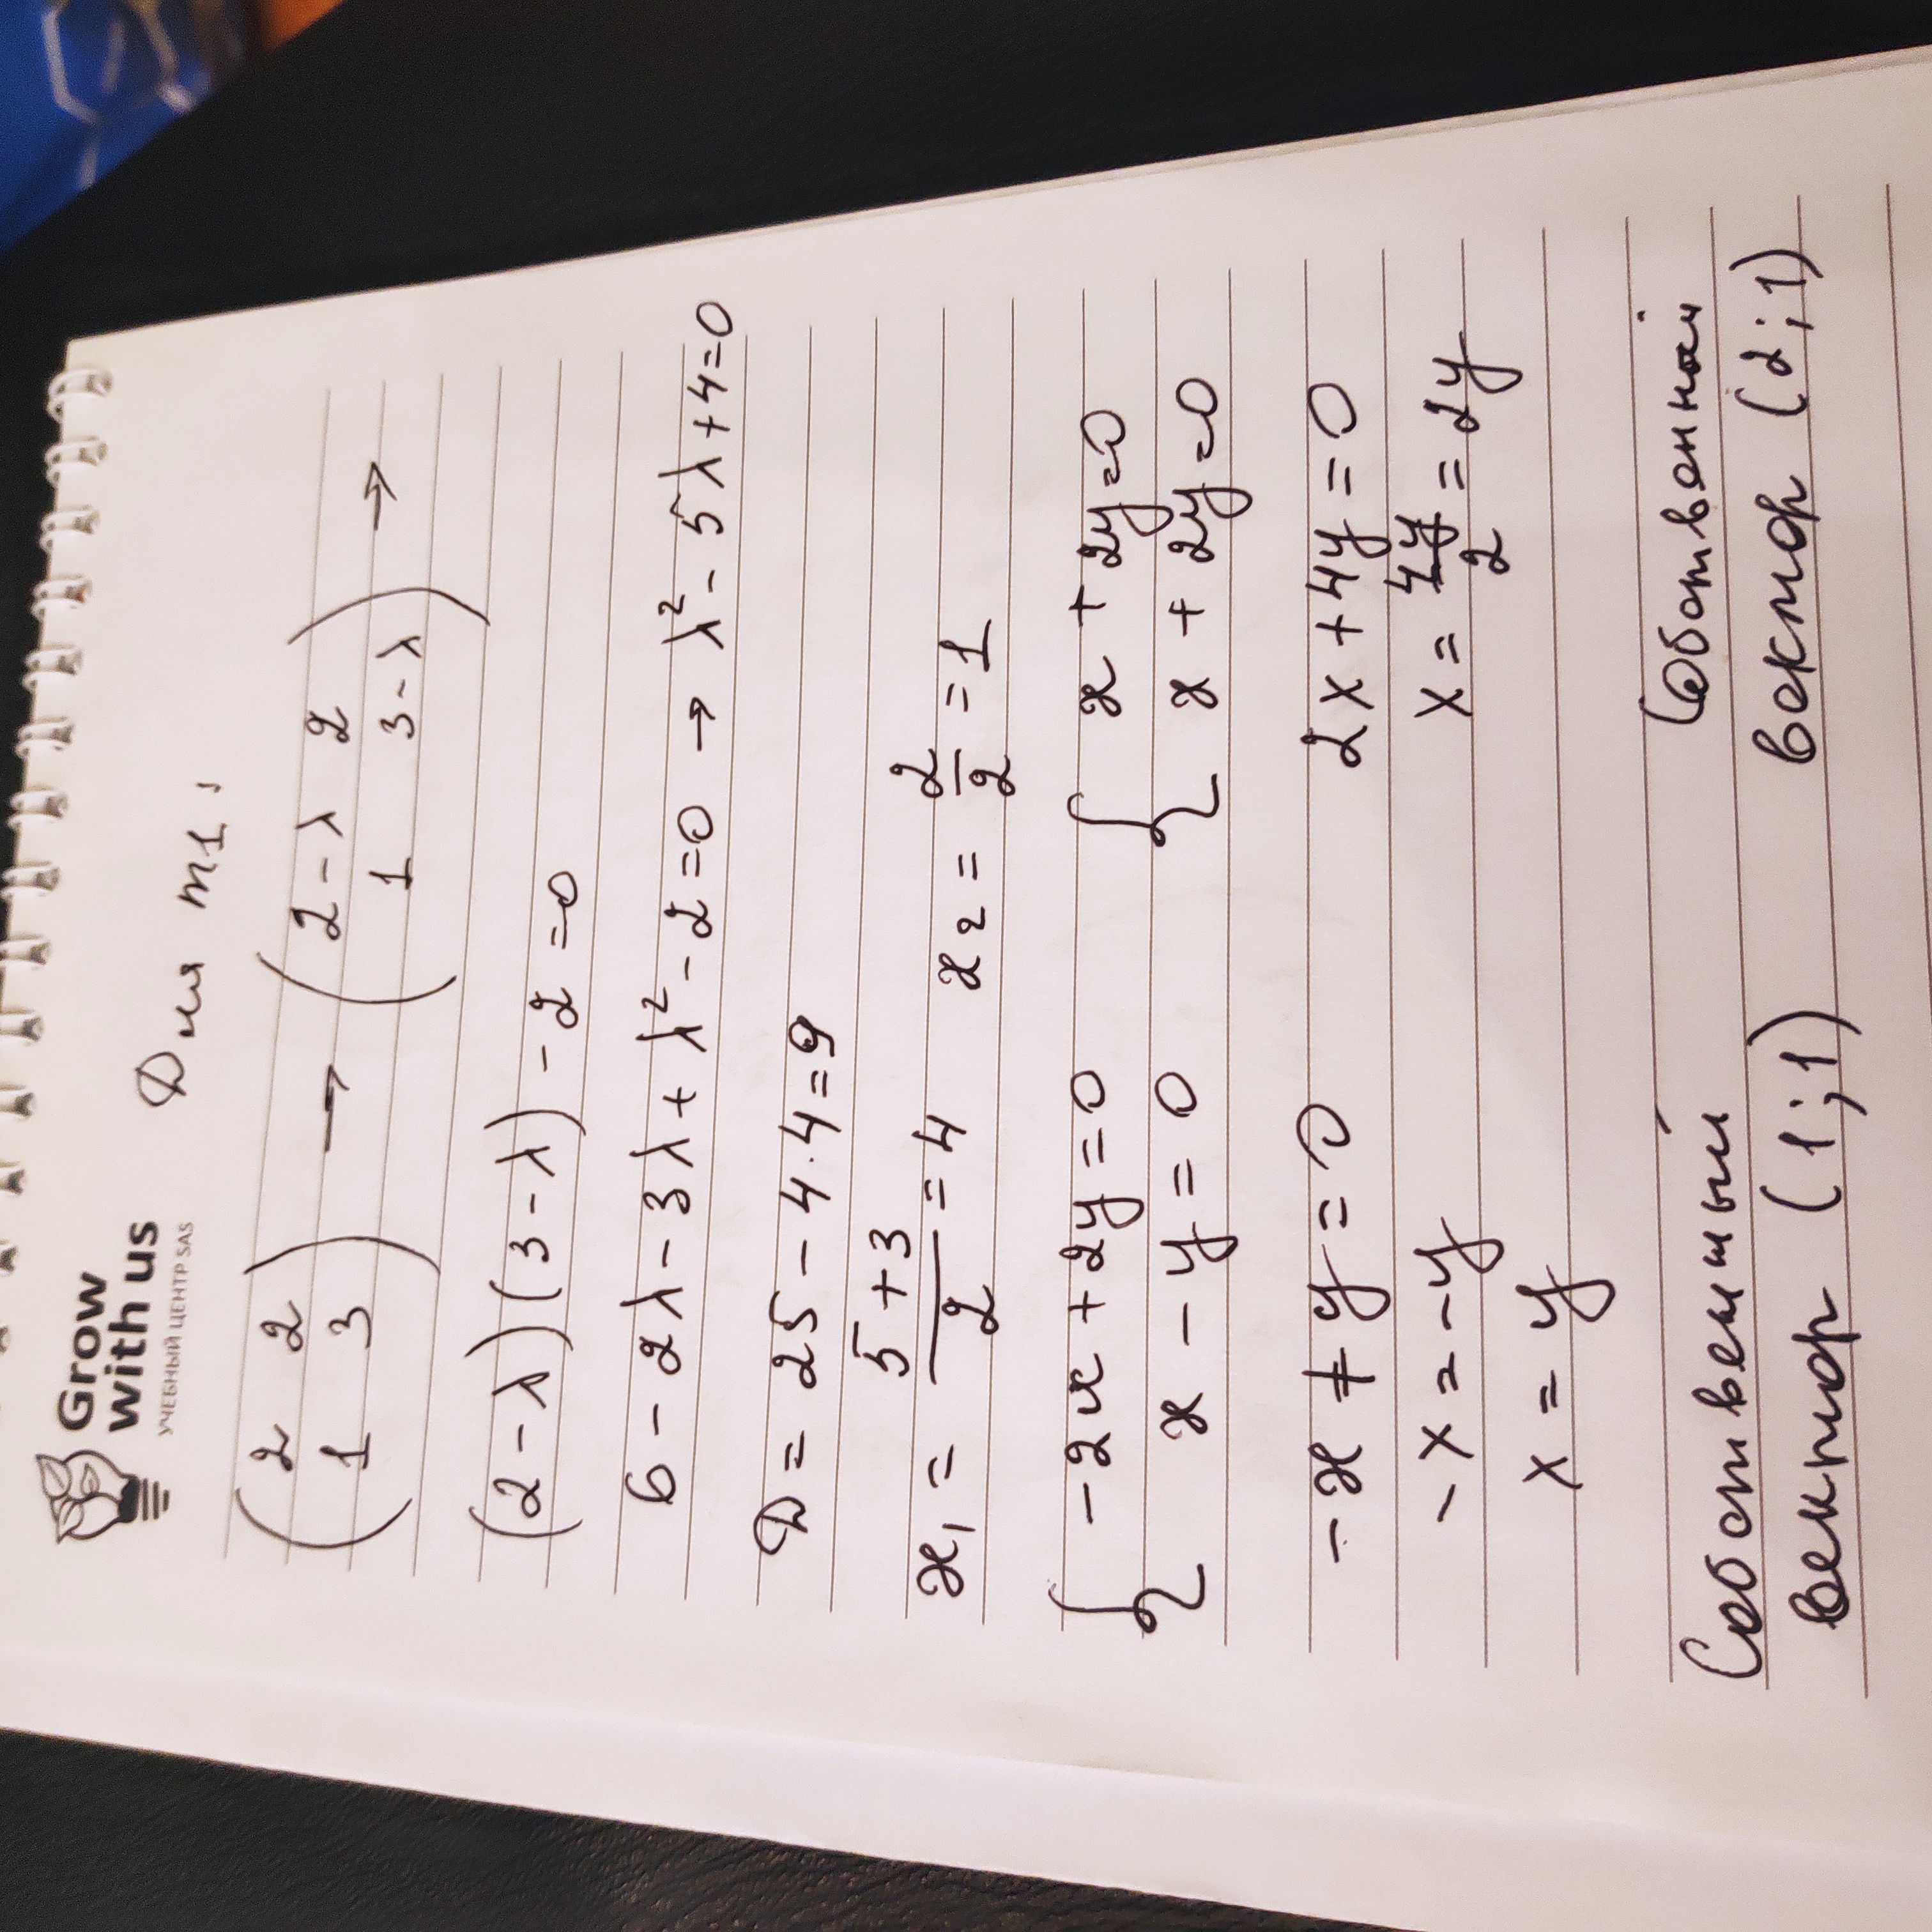 Grow
with us
УЧЕБНЫЙ ЦЕНТР SAS
Для m1:
( 2 2 ) → ( 2-λ 2 ) →
( 1 3 ) ( 1 3-λ )
(2-λ)(3-λ) -2 =0
6 - 2λ - 3λ + λ² - 2 = 0 → λ² - 5λ + 4 = 0
D = 25 - 4·4 = 9
x₁ = (5+3)/2 = 4 x₂ = 2/2 = 1
{ -2x + 2y = 0 { x + 2y = 0
x - y = 0 x + 2y = 0
-x + y = 0 2x + 4y = 0
-x = -y x = 4y/2 = 2y
x = y
Собственный Собственный
вектор (1;1) вектор (2;1)